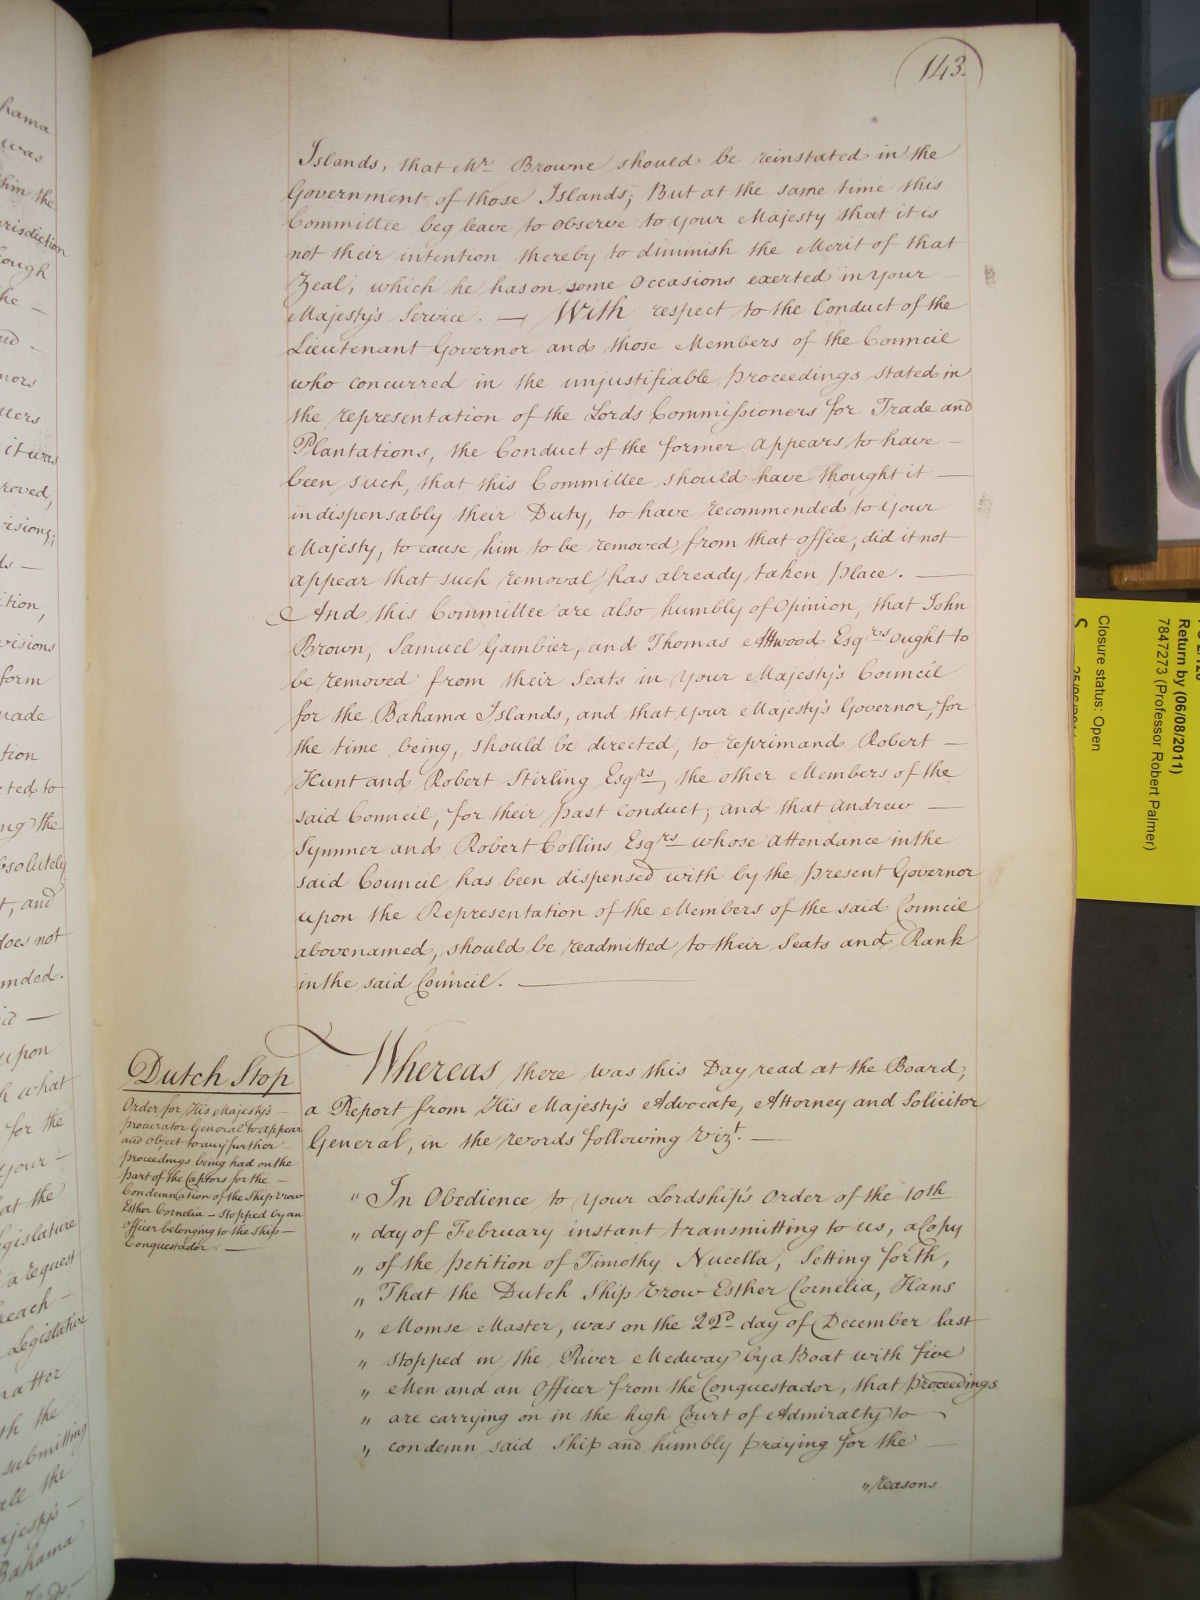 143.
Islands, that Mr. Browne should be reinstated in the
Government of those Islands; But at the same time this
Committee beg leave to observe to your Majesty that it is
not their intention thereby to diminish the Merit of that
Zeal, which he has on some Occasions exerted in your —
Majesty's Service. — With respect to the Conduct of the
Lieutenant Governor and those Members of the Council
who concurred in the unjustifiable Proceedings stated in
the representation of the Lords Commissioners for Trade and
Plantations, the Conduct of the former appears to have —
been such, that this Committee should have thought it —
indispensably their Duty, to have recommended to your
Majesty, to cause him to be removed from that office, did it not
appear that such removal has already taken place. —
And this Committee are also humbly of Opinion, that John
Brown, Samuel Gambier, and Thomas Attwood Esqrs ought to
be removed from their Seats in your Majesty's Council
for the Bahama Islands, and that your Majesty's Governor, for
the time being, should be directed, to reprimand Robert —
Hunt and Robert Stirling Esqrs, the other Members of the
said Council, for their past conduct; and that Andrew —
Symmer and Robert Collins Esqrs whose attendance in the
said Council has been dispensed with by the present Governor
upon the Representation of the Members of the said Council
abovenamed, should be readmitted to their Seats and Rank
in the said Council. —
Dutch Stop
Order for His Majesty's —
procurator General to appear
and object to any further
proceedings being had on the
part of the Captors for the —
Condemnation of the Ship Vrow
Esther Cornelia — stopped by an
officer belonging to the Ship —
Conquestador. —
Whereas there was this Day read at the Board,
a Report from His Majesty's Advocate, Attorney and Solicitor
General, in the words following Vizt. —
" In Obedience to your Lordship's Order of the 10th
" day of February instant transmitting to us, a Copy
" of the petition of Timothy Nucella, Setting forth,
" That the Dutch Ship Vrow Esther Cornelia, Hans
" Momse Master, was on the 22d day of December last
" stopped in the River Medway by a Boat with five
" Men and an Officer from the Conquestador, that proceedings
" are carrying on in the high Court of Admiralty to
" condemn said Ship and humbly praying for the
" reasons
Closure status: Open
7847273 (Professor Robert Palmer)
Return by (06/08/2011)